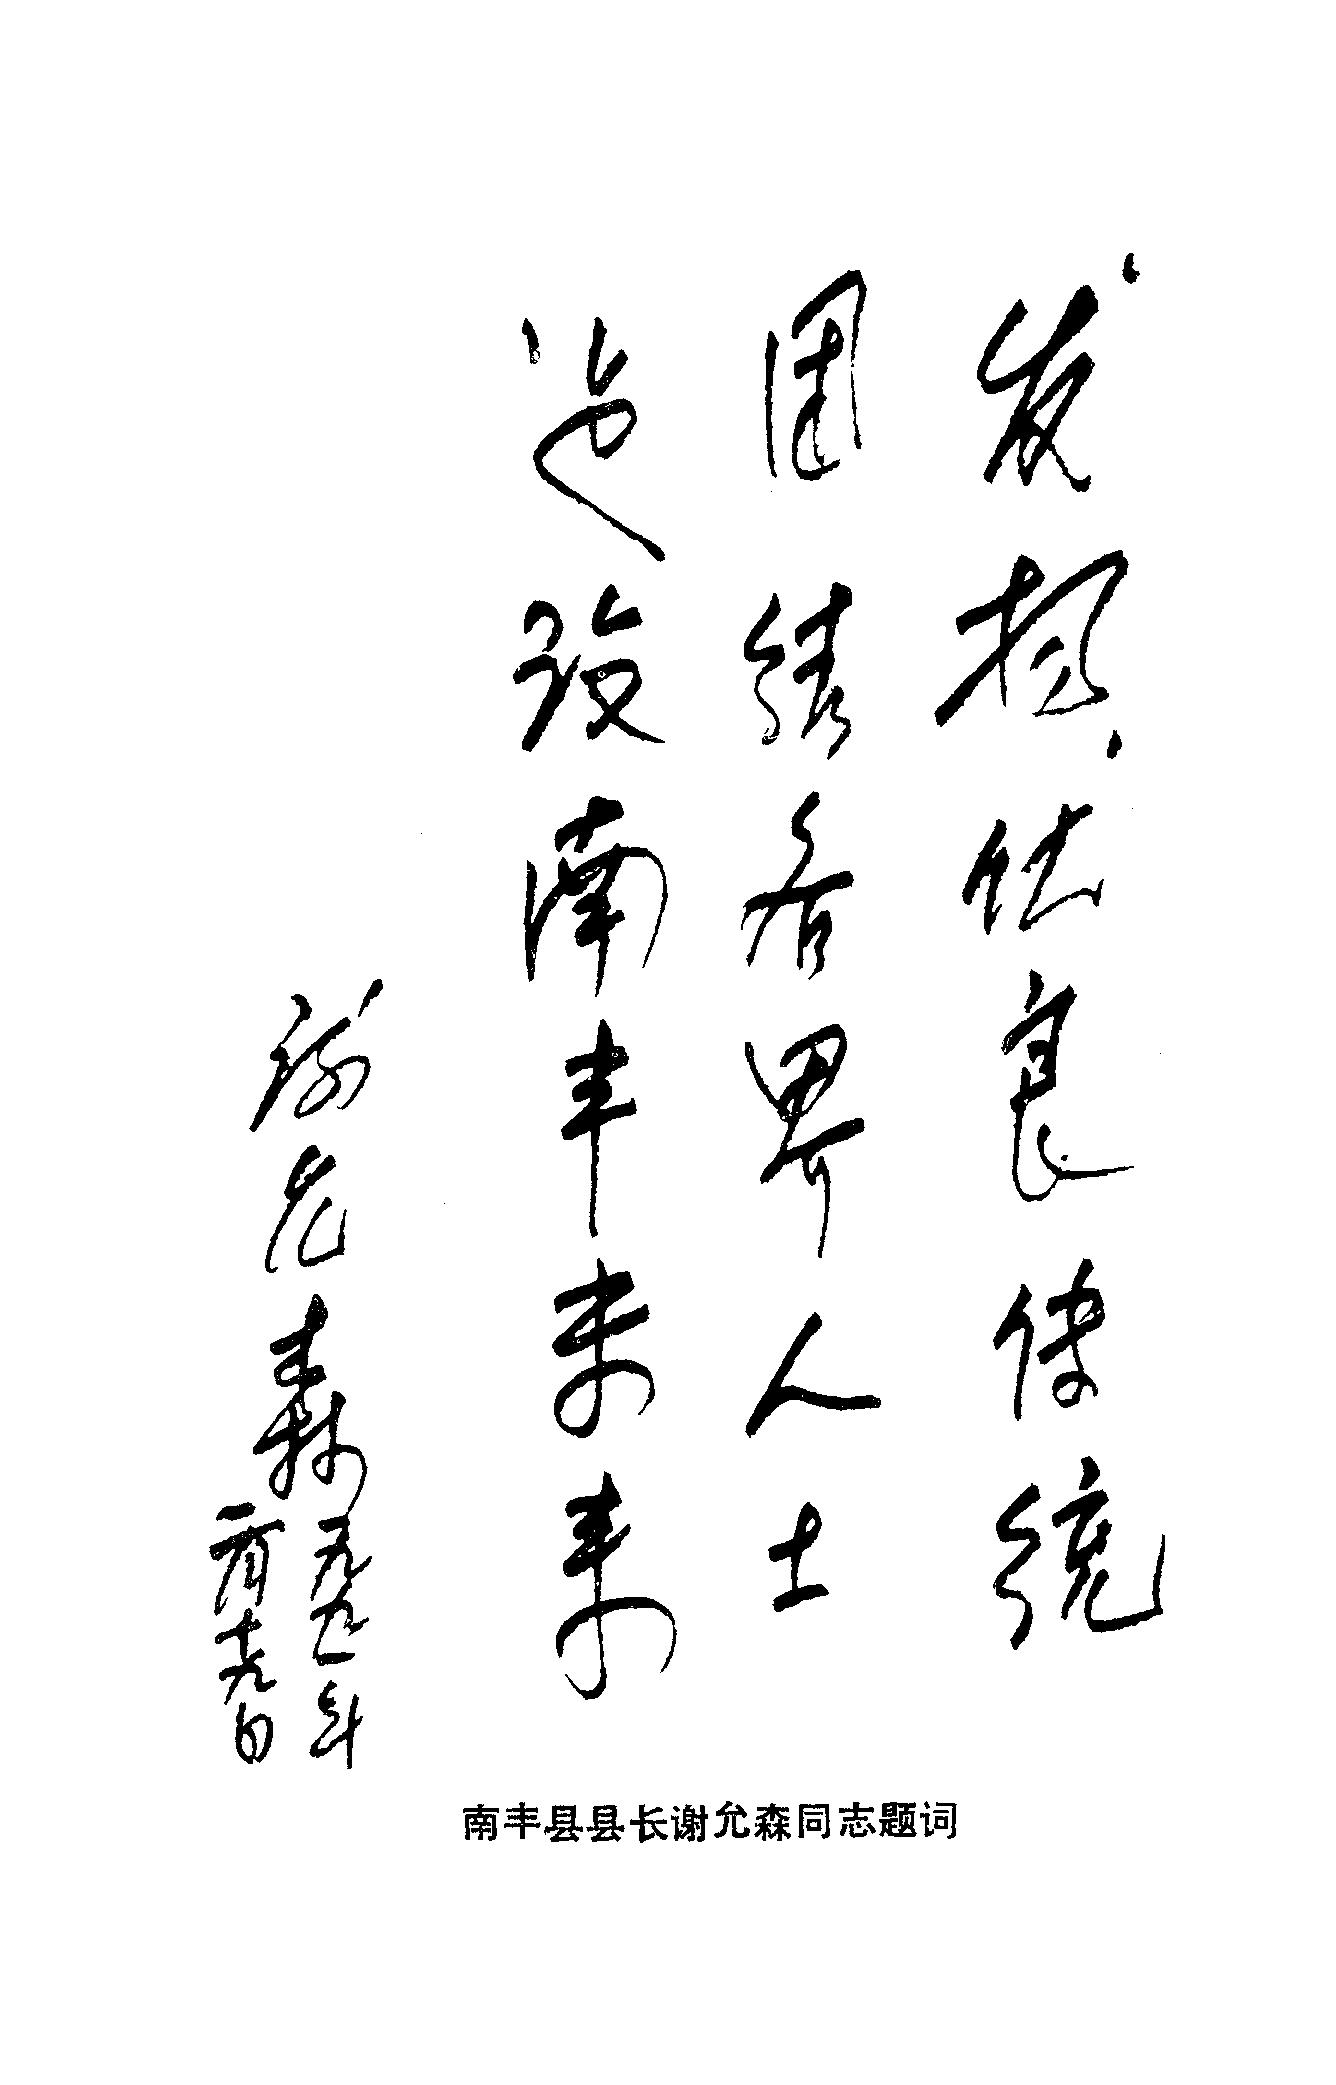 发扬优良传统
团结各界人士
建设南丰未来
谢允森
一九九一年
二月十九日
南丰县县长谢允森同志题词